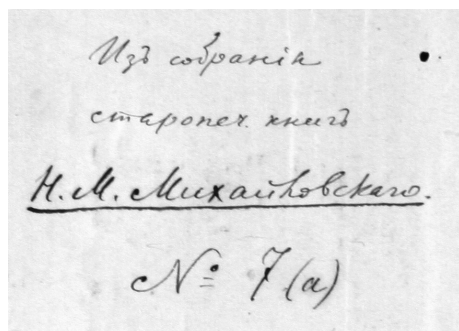 Изъ собранія
старопеч. книгъ
Н. М. Михайловскаго.
№ 7 (а)